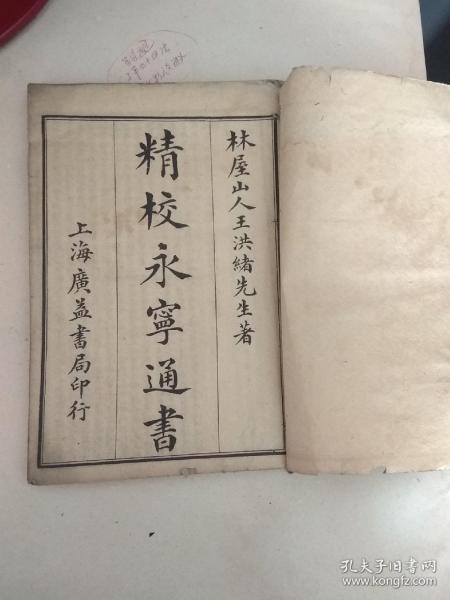 林屋山人王洪緒先生著
精校永寧通書
上海廣益書局印行
孔夫子旧书网
www.kongfz.com